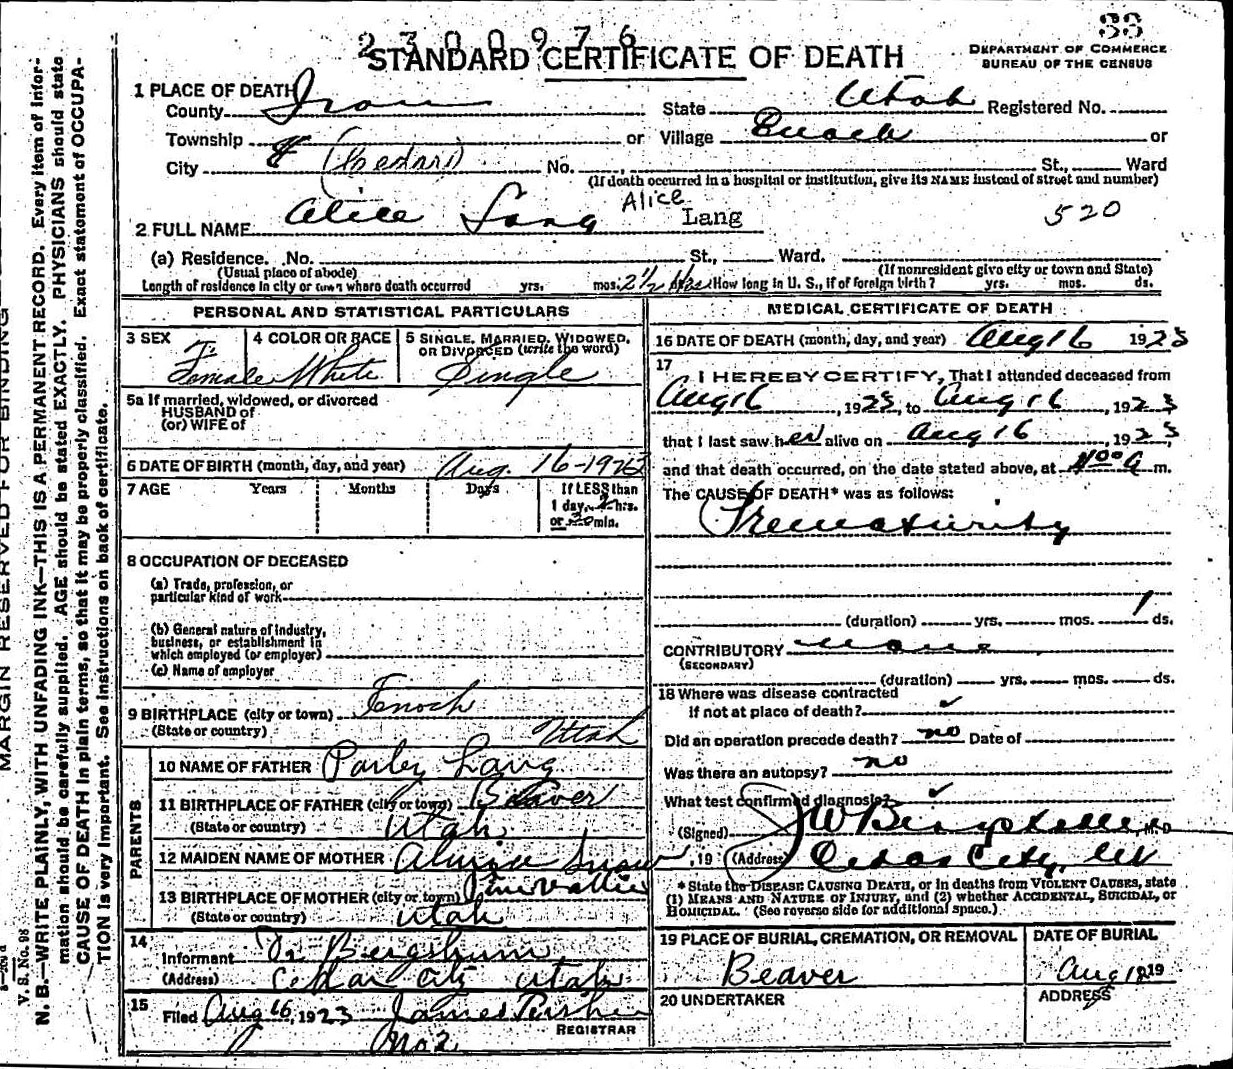 2300976
33
STANDARD CERTIFICATE OF DEATH
DEPARTMENT OF COMMERCE
BUREAU OF THE CENSUS
1 PLACE OF DEATH
County Iron State Utah Registered No.
Township or Village Enoch or
City (Cedar) No. St., Ward
(If death occurred in a hospital or institution, give its NAME instead of street and number)
2 FULL NAME Alice Lang Alice Lang 520
(a) Residence. No. St., Ward.
(Usual place of abode) (If nonresident give city or town and State)
Length of residence in city or town where death occurred yrs. mos. 2½ hrs How long in U. S., if of foreign birth? yrs. mos. ds.
PERSONAL AND STATISTICAL PARTICULARS
3 SEX Female
4 COLOR OR RACE White
5 SINGLE, MARRIED, WIDOWED, OR DIVORCED (write the word) Single
5a If married, widowed, or divorced
HUSBAND of
(or) WIFE of
6 DATE OF BIRTH (month, day, and year) Aug. 16-1923
7 AGE Years Months Days If LESS than
1 day, 2 hrs.
or 30 min.
8 OCCUPATION OF DECEASED
(a) Trade, profession, or
particular kind of work
(b) General nature of industry,
business, or establishment in
which employed (or employer)
(c) Name of employer
9 BIRTHPLACE (city or town) Enoch
(State or country) Utah
PARENTS
10 NAME OF FATHER Parley Lang
11 BIRTHPLACE OF FATHER (city or town) Beaver
(State or country) Utah
12 MAIDEN NAME OF MOTHER Snow
13 BIRTHPLACE OF MOTHER (city or town) Pine Vallie
(State or country) Utah
14
Informant Dr
(Address) Cedar City Utah
15
Filed Aug 16, 1923 James
REGISTRAR
No 2
MEDICAL CERTIFICATE OF DEATH
16 DATE OF DEATH (month, day, and year) Aug 16 1923
17
I HEREBY CERTIFY, That I attended deceased from
Aug 16, 1923, to Aug 16, 1923
that I last saw her alive on Aug 16, 1923,
and that death occurred, on the date stated above, at m.
The CAUSE OF DEATH* was as follows:
Prematurity
(duration) yrs. mos. 1 ds.
CONTRIBUTORY none
(SECONDARY)
(duration) yrs. mos. ds.
18 Where was disease contracted
if not at place of death? ✓
Did an operation precede death? no Date of
Was there an autopsy? no
What test confirmed diagnosis? ✓
(Signed) J W M. D
, 19 (Address) Cedar City, Ut
* State the DISEASE CAUSING DEATH, or in deaths from VIOLENT CAUSES, state
(1) MEANS AND NATURE OF INJURY, and (2) whether ACCIDENTAL, SUICIDAL, or
HOMICIDAL. (See reverse side for additional space.)
19 PLACE OF BURIAL, CREMATION, OR REMOVAL Beaver
DATE OF BURIAL Aug 18 19
20 UNDERTAKER
ADDRESS
MARGIN RESERVED FOR BINDING
V. S. No. 98
N. B.—WRITE PLAINLY, WITH UNFADING INK—THIS IS A PERMANENT RECORD. Every item of infor-
mation should be carefully supplied. AGE should be stated EXACTLY. PHYSICIANS should state
CAUSE OF DEATH in plain terms, so that it may be properly classified. Exact statement of OCCUPA-
TION is very important. See instructions on back of certificate.